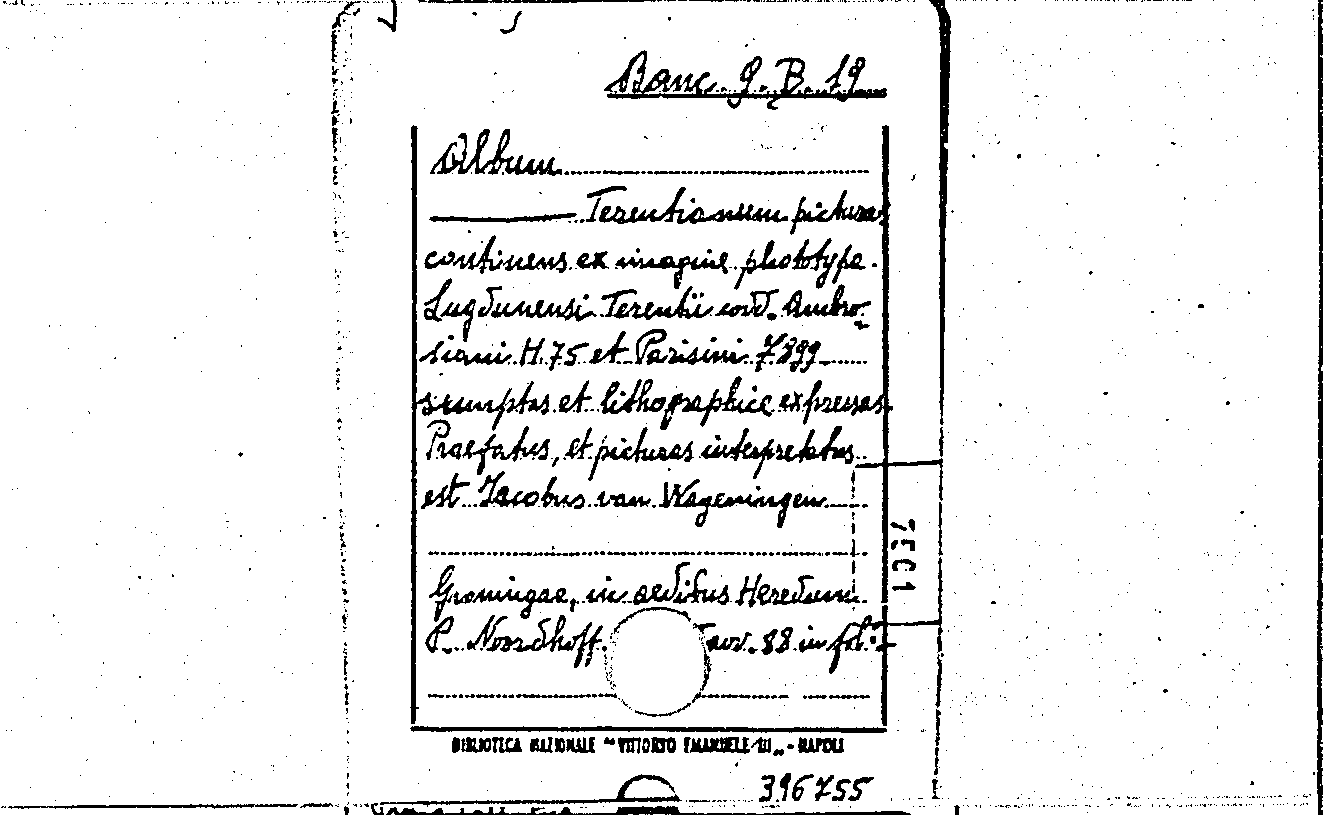 Banc. 9. B. 19
Album
Terentianum picturas
continens ex imagine phototype.
Lugdunensi Terentii cod. Ambro-
siani H.75 et Parisini 7899
sumptas et lithographice expressas.
Praefatus, et picturas interpretatus
est Jacobus van Wageningen
7501
Groningae, in aedibus Heredum
P. Noordhoff. tav. 88 in fol.
BIBLIOTECA NAZIONALE "VITTORIO EMANUELE III„ - NAPOLI
396755